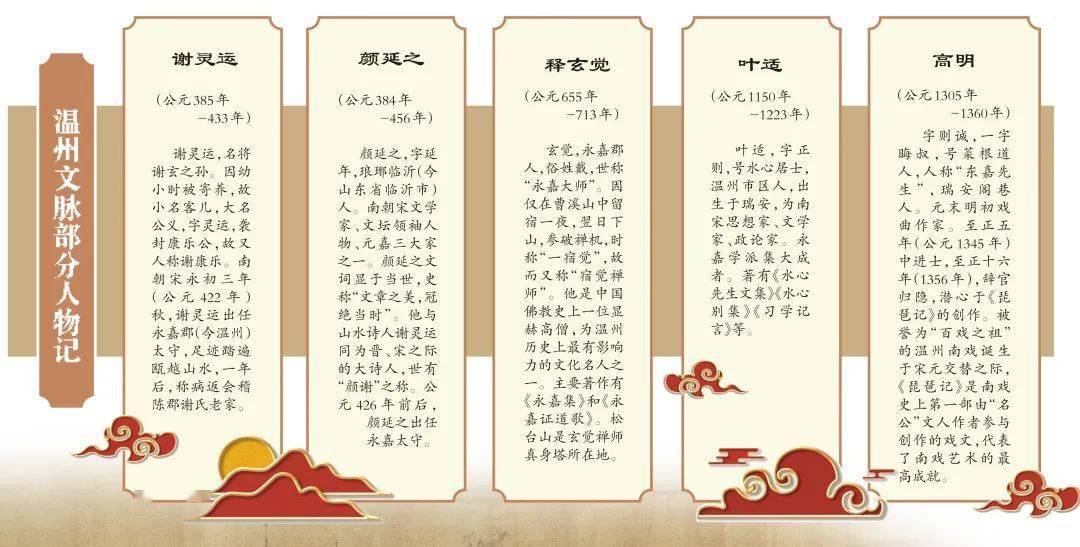 温州文脉部分人物记
谢灵运
(公元385年
-433年)
谢灵运,名将
谢玄之孙。因幼
小时被寄养,故
小名客儿,大名
公义,字灵运,袭
封康乐公,故又
人称谢康乐。南
朝宋永初三年
(公元422年)
秋,谢灵运出任
永嘉郡(今温州)
太守,足迹踏遍
瓯越山水,一年
后,称病返会稽
陈郡谢氏老家。
颜延之
(公元384年
-456年)
颜延之,字延
年,琅琊临沂(今
山东省临沂市)
人。南朝宋文学
家、文坛领袖人
物、元嘉三大家
之一。颜延之文
词显于当世,史
称“文章之美,冠
绝当时”。他与
山水诗人谢灵运
同为晋、宋之际
的大诗人,世有
“颜谢”之称。公
元426年前后,
颜延之出任
永嘉太守。
释玄觉
(公元655年
-713年)
玄觉,永嘉郡
人,俗姓戴,世称
“永嘉大师”。因
仅在曹溪山中留
宿一夜,翌日下
山,参破禅机,时
称“一宿觉”,故
而又称“宿觉禅
师”。他是中国
佛教史上一位显
赫高僧,为温州
历史上最有影响
力的文化名人之
一。主要著作有
《永嘉集》和《永
嘉证道歌》。松
台山是玄觉禅师
真身塔所在地。
叶适
(公元1150年
-1223年)
叶适,字正
则,号水心居士,
温州市区人,出
生于瑞安,为南
宋思想家、文学
家、政论家。永
嘉学派集大成
者。著有《水心
先生文集》《水心
别集》《习学记
言》等。
高明
(公元1305年
-1360年)
字则诚,一字
晦叔,号菜根道
人,人称“东嘉先
生”,瑞安阁巷
人。元末明初戏
曲作家。至正五
年(公元1345年)
中进士,至正十六
年(1356年),辞官
归隐,潜心于《琵
琶记》的创作。被
誉为“百戏之祖”
的温州南戏诞生
于宋元交替之际,
《琵琶记》是南戏
史上第一部由“名
公”文人作者参与
创作的戏文,代表
了南戏艺术的最
高成就。